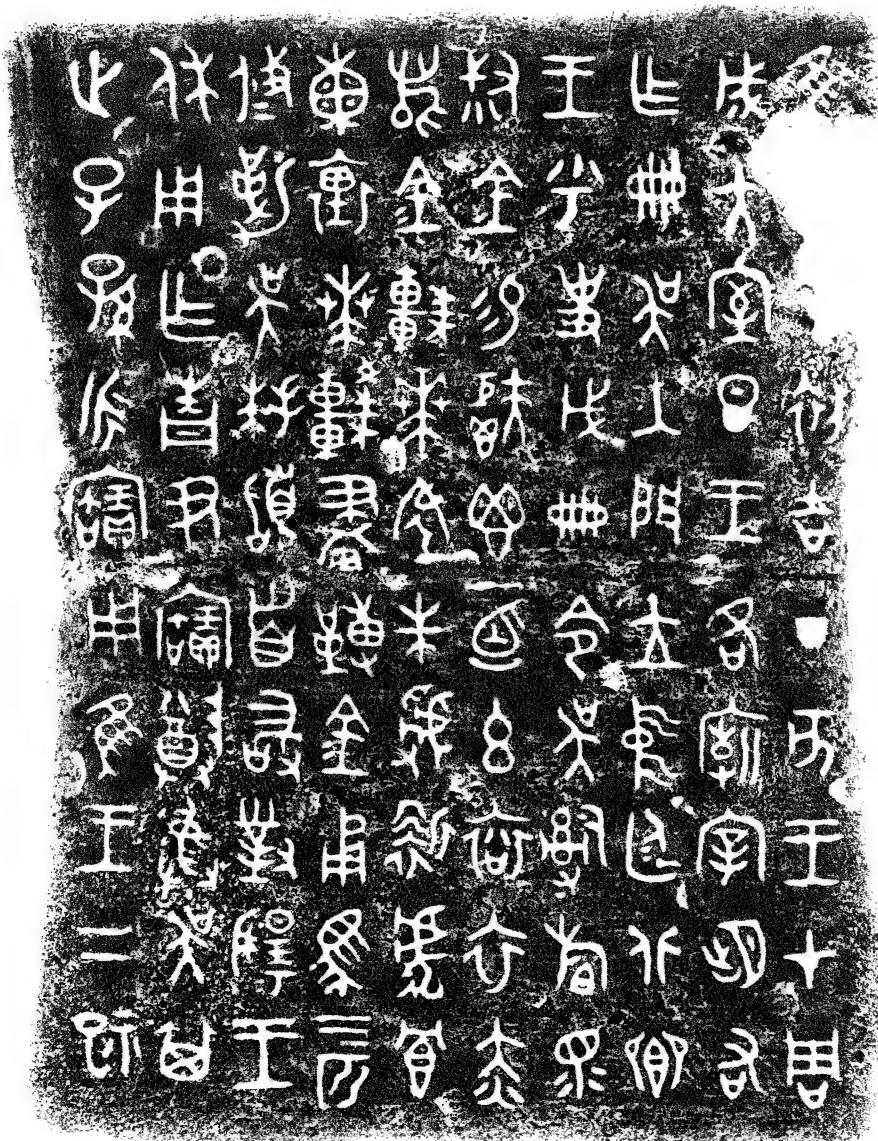 隹初吉丁亥王才周
成大室旦王各廟宰朏右
乍冊吳入門立中廷北鄉
王乎史戊冊令吳𤔲眔
叔金易秬鬯一卣玄袞衣赤
舄金車𠦪朱虢靳虎冟
熏裏𠦪較畫轉金甬馬四匹
攸勒吳拜稽首敢對揚王
休用乍青尹寶尊彝吳其
世子孫永寶用隹王二祀